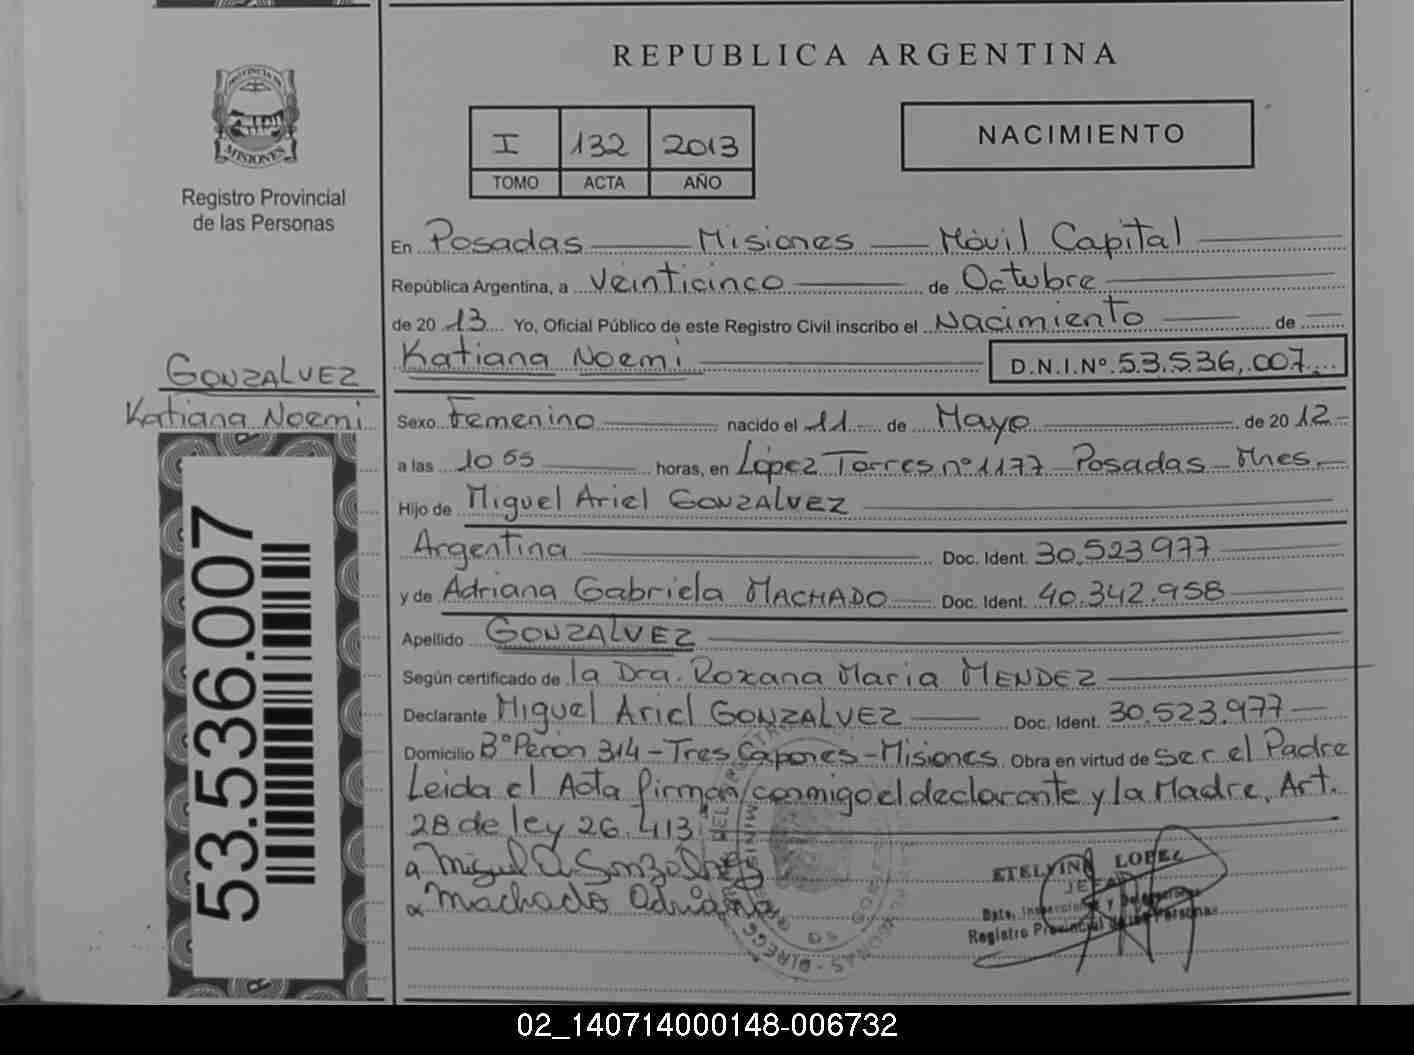 REPUBLICA ARGENTINA
PROVINCIA DE
MISIONES
Registro Provincial
de las Personas
I 132 2013
TOMO ACTA AÑO
NACIMIENTO
En Posadas Misiones Móvil Capital
República Argentina, a veinticinco de Octubre
de 2013 Yo, Oficial Público de este Registro Civil inscribo el Nacimiento de
Katiana Noemi D.N.I.Nº 53.536.007
GONZALVEZ
Katiana Noemi
53.536.007
Sexo Femenino nacido el 11 de Mayo de 2012
a las 10 55 horas, en López Torres nº 1177 Posadas - Mnes.
Hijo de Miguel Ariel GONZALVEZ
Argentina Doc. Ident. 30.523.977
y de Adriana Gabriela MACHADO Doc. Ident. 40.342.958
Apellido GONZALVEZ
Según certificado de la Dra. Roxana Maria MENDEZ
Declarante Miguel Ariel GONZALVEZ Doc. Ident. 30.523.977
Domicilio Bº Perón 314 - Tres Capones - Misiones Obra en virtud de ser el Padre
Leida el Acta firman conmigo el declarante y la Madre, Art.
28 de ley 26.413
Machado Adriana
ETELVINA LOPEZ
JEFA
Registro Provincial de las Personas
02_140714000148-006732